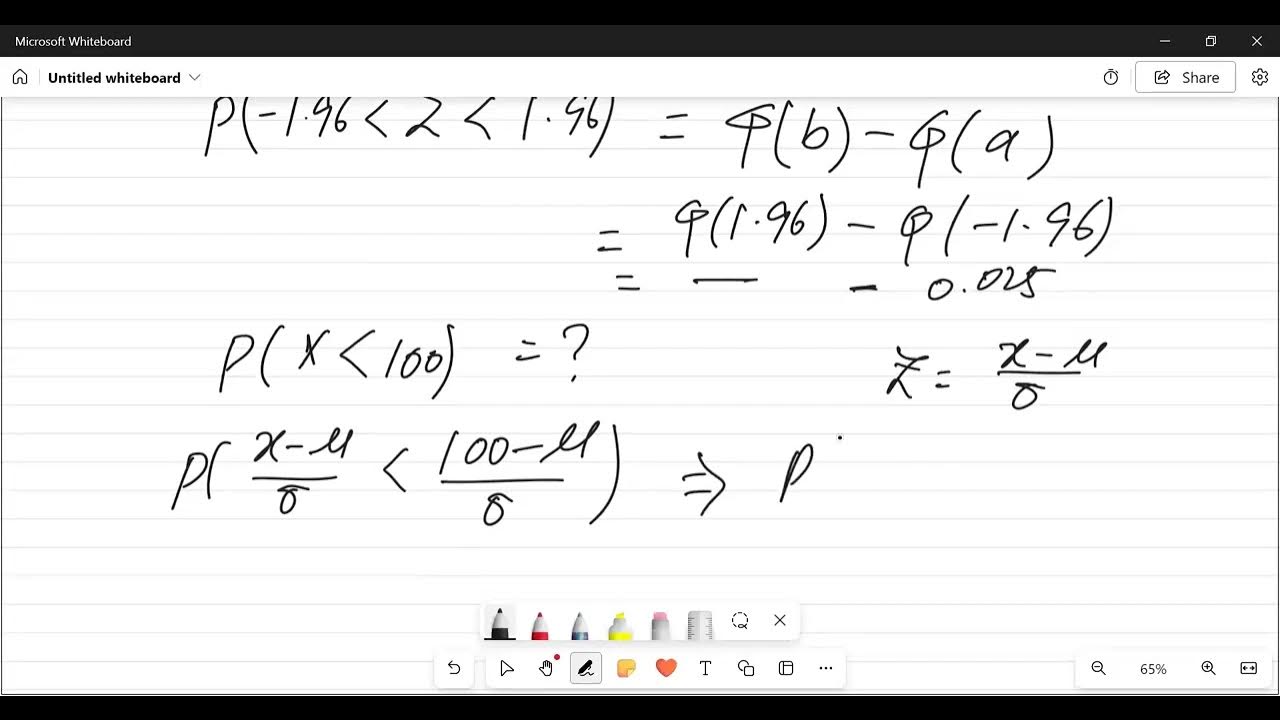 Microsoft Whiteboard
Untitled whiteboard
Share
P(-1.96 < Z < 1.96) = φ(b) - φ(a)
= φ(1.96) - φ(-1.96)
= — - 0.025
P(X < 100) = ?
Z = (x-μ)/σ
P((x-μ)/σ < (100-μ)/σ) ⇒ P
65%